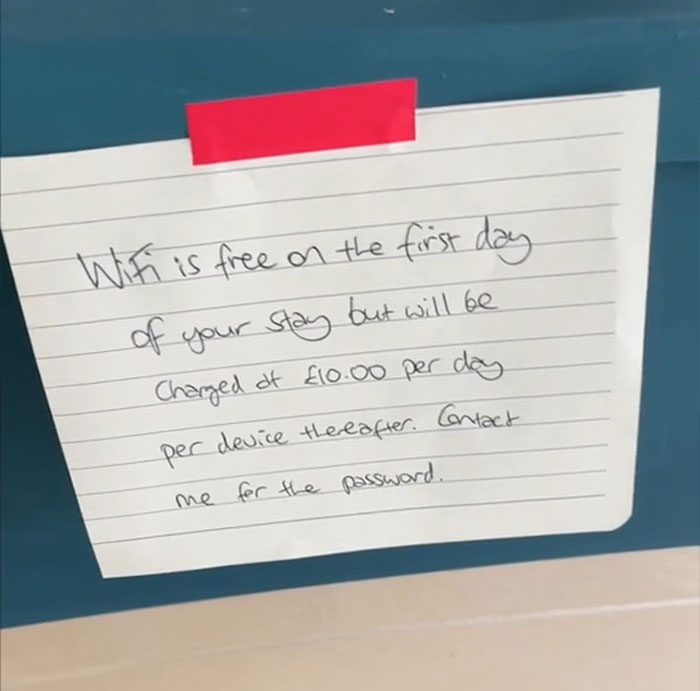 Wifi is free on the first day
of your stay but will be
Charged at £10.00 per day
per device thereafter. Contact
me for the password.